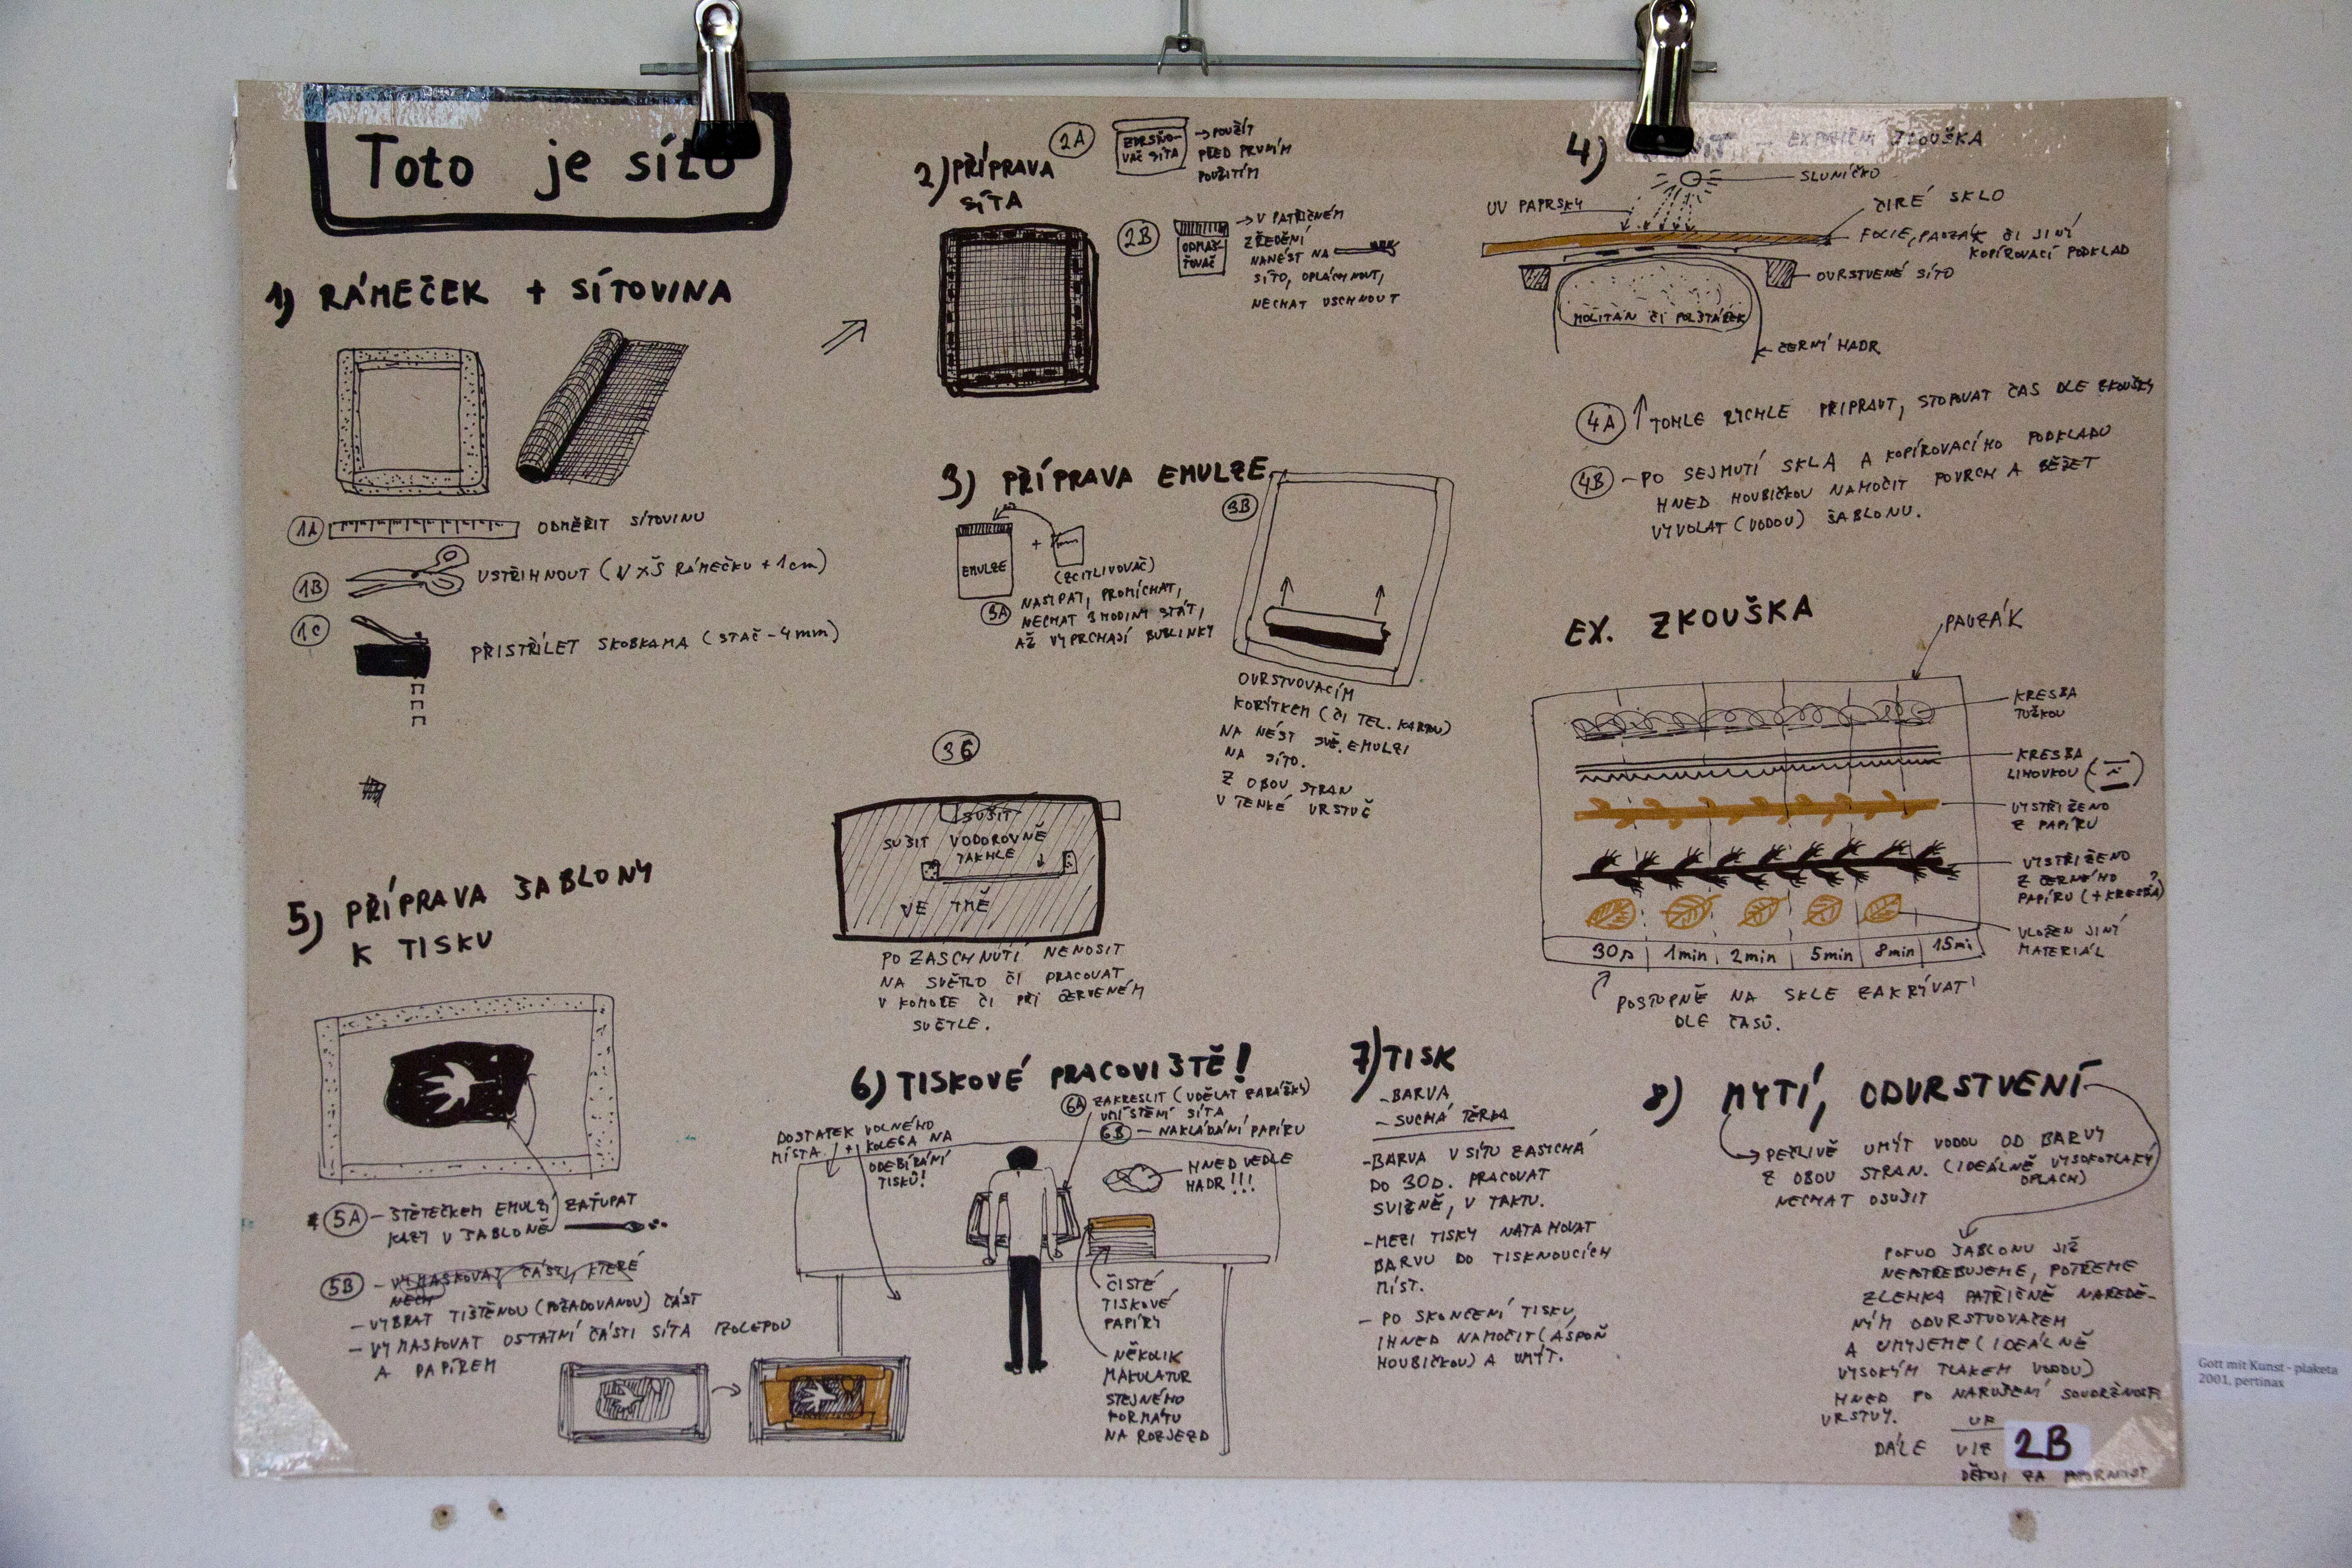 Toto je síto
1) RÁMEČEK + SÍTOVINA
1A ODMĚŘIT SÍTOVINU
1B USTŘIHNOUT (V×Š RÁMEČKU + 1cm)
1C PŘISTŘÍLET SKOBKAMA (STAČ - 4mm)
2) PŘÍPRAVA
SÍTA
2A
ZDRSŇO-
VAČ SÍTA
→ POUŽÍT
PŘED PRVNÍM
POUŽITÍM
2B
ODMAŠ-
ŤOVAČ
→ V PATŘIČNÉM
ZŘEDĚNÍ
NANÉST NA
SÍTO, OPLÁCHNOUT,
NECHAT USCHNOUT
3) PŘÍPRAVA EMULZE
EMULZE
+
(ZCITLIVOVAČ)
3A NASYPAT, PROMÍCHAT,
NECHAT 3 HODINY STÁT,
AŽ VYPRCHAJÍ BUBLINKY
3B
OVRSTVOVACÍM
KORÝTKEM (ČI TEL. KARTOU)
NA NÉST SVĚ. EMULZI
NA SÍTO.
Z OBOU STRAN
V TENKÉ VRSTVĚ
3C
SUŠIT
SUŠIT VODOROVNĚ
TAKHLE
VE TMĚ
PO ZASCHNUTÍ NENOSIT
NA SVĚTLO ČI PRACOVAT
V KOMOŘE ČI PŘI ČERVENÉM
SVĚTLE.
4) → EXPOZIČNÍ ZKOUŠKA
SLUNÍČKO
UV PAPRSKY
ČIRÉ SKLO
FOLIE, PAUZÁK ČI JINÝ
KOPÍROVACÍ PODKLAD
OVRSTVENÉ SÍTO
MOLITAN ČI POLŠTÁŘEK
ČERNÝ HADR
4A ↑ TOHLE RYCHLE PŘIPRAVIT, STOPOVAT ČAS DLE ZKOUŠKY
4B - PO SEJMUTÍ SKLA A KOPÍROVACÍHO PODKLADU
HNED HOUBIČKOU NAMOČIT POVRCH A BĚŽET
VYVOLAT (VODOU) ŠABLONU.
EX. ZKOUŠKA
PAUZÁK
KRESBA
TUŽKOU
KRESBA
LIHOVKOU
VYSTŘIŽENO
Z PAPÍRU
VYSTŘIŽENO
Z ČERNÉHO
PAPÍRU (+ KRESBA)
VLOŽEN JINÝ
MATERIÁL
30s 1min 2min 5min 8min 15mi
POSTUPNĚ NA SKLE ZAKRÝVAT
DLE ČASŮ.
5) PŘÍPRAVA ŠABLONY
K TISKU
5A - ŠTĚTEČKEM EMULZÍ ZAŤUPAT
KAZY V ŠABLONĚ
5B - VYMASKOVAT ČÁSTI, KTERÉ
NECH
- VYBRAT TIŠTĚNOU (POŽADOVANOU) ČÁST
- VYMASKOVAT OSTATNÍ ČÁSTI SÍTA IZOLEPOU
A PAPÍREM
6) TISKOVÉ PRACOVIŠTĚ!
6A ZAKRESLIT (UDĚLAT ZARÁŽKY)
UMÍSTĚNÍ SÍTA
6B - NAKLÁDÁNÍ PAPÍRU
DOSTATEK VOLNÉHO
MÍSTA + KOLEGA NA
ODEBÍRÁNÍ
TISKŮ!
HNED VEDLE
HADR!!!
ČISTÉ
TISKOVÉ
PAPÍRY
NĚKOLIK
MAKULATUR
STEJNÉHO
FORMÁTU
NA ROZJEZD
7) TISK
- BARVA
- SUCHÁ TĚRKA
- BARVA V SÍTU ZASYCHÁ
DO 30s. PRACOVAT
SVIŽNĚ, V TAKTU.
- MEZI TISKY NATAHOVAT
BARVU DO TISKNOUCÍCH
MÍST.
- PO SKONČENÍ TISKU,
IHNED NAMOČIT (ASPOŇ
HOUBIČKOU) A UMÝT.
8) MYTÍ, ODVRSTVENÍ
PEČLIVĚ UMÝT VODOU OD BARVY
Z OBOU STRAN. (IDEÁLNĚ VYSOKOTLAKÝ
OPLACH)
NECHAT OSUŠIT
POKUD ŠABLONU JIŽ
NEPOTŘEBUJEME, POTŘEME
ZLEHKA PATŘIČNĚ NAŘEDĚ-
NÝM ODVRSTVOVAČEM
A UMYJEME (IDEÁLNĚ
VYSOKÝM TLAKEM VODOU)
HNED PO NARUŠENÍ SOUDRŽNOSTI
VRSTVY.
DÁLE VIZ 2B
DĚKUJI ZA POZORNOST
Gott mit Kunst - plaketa
2001, pertinax